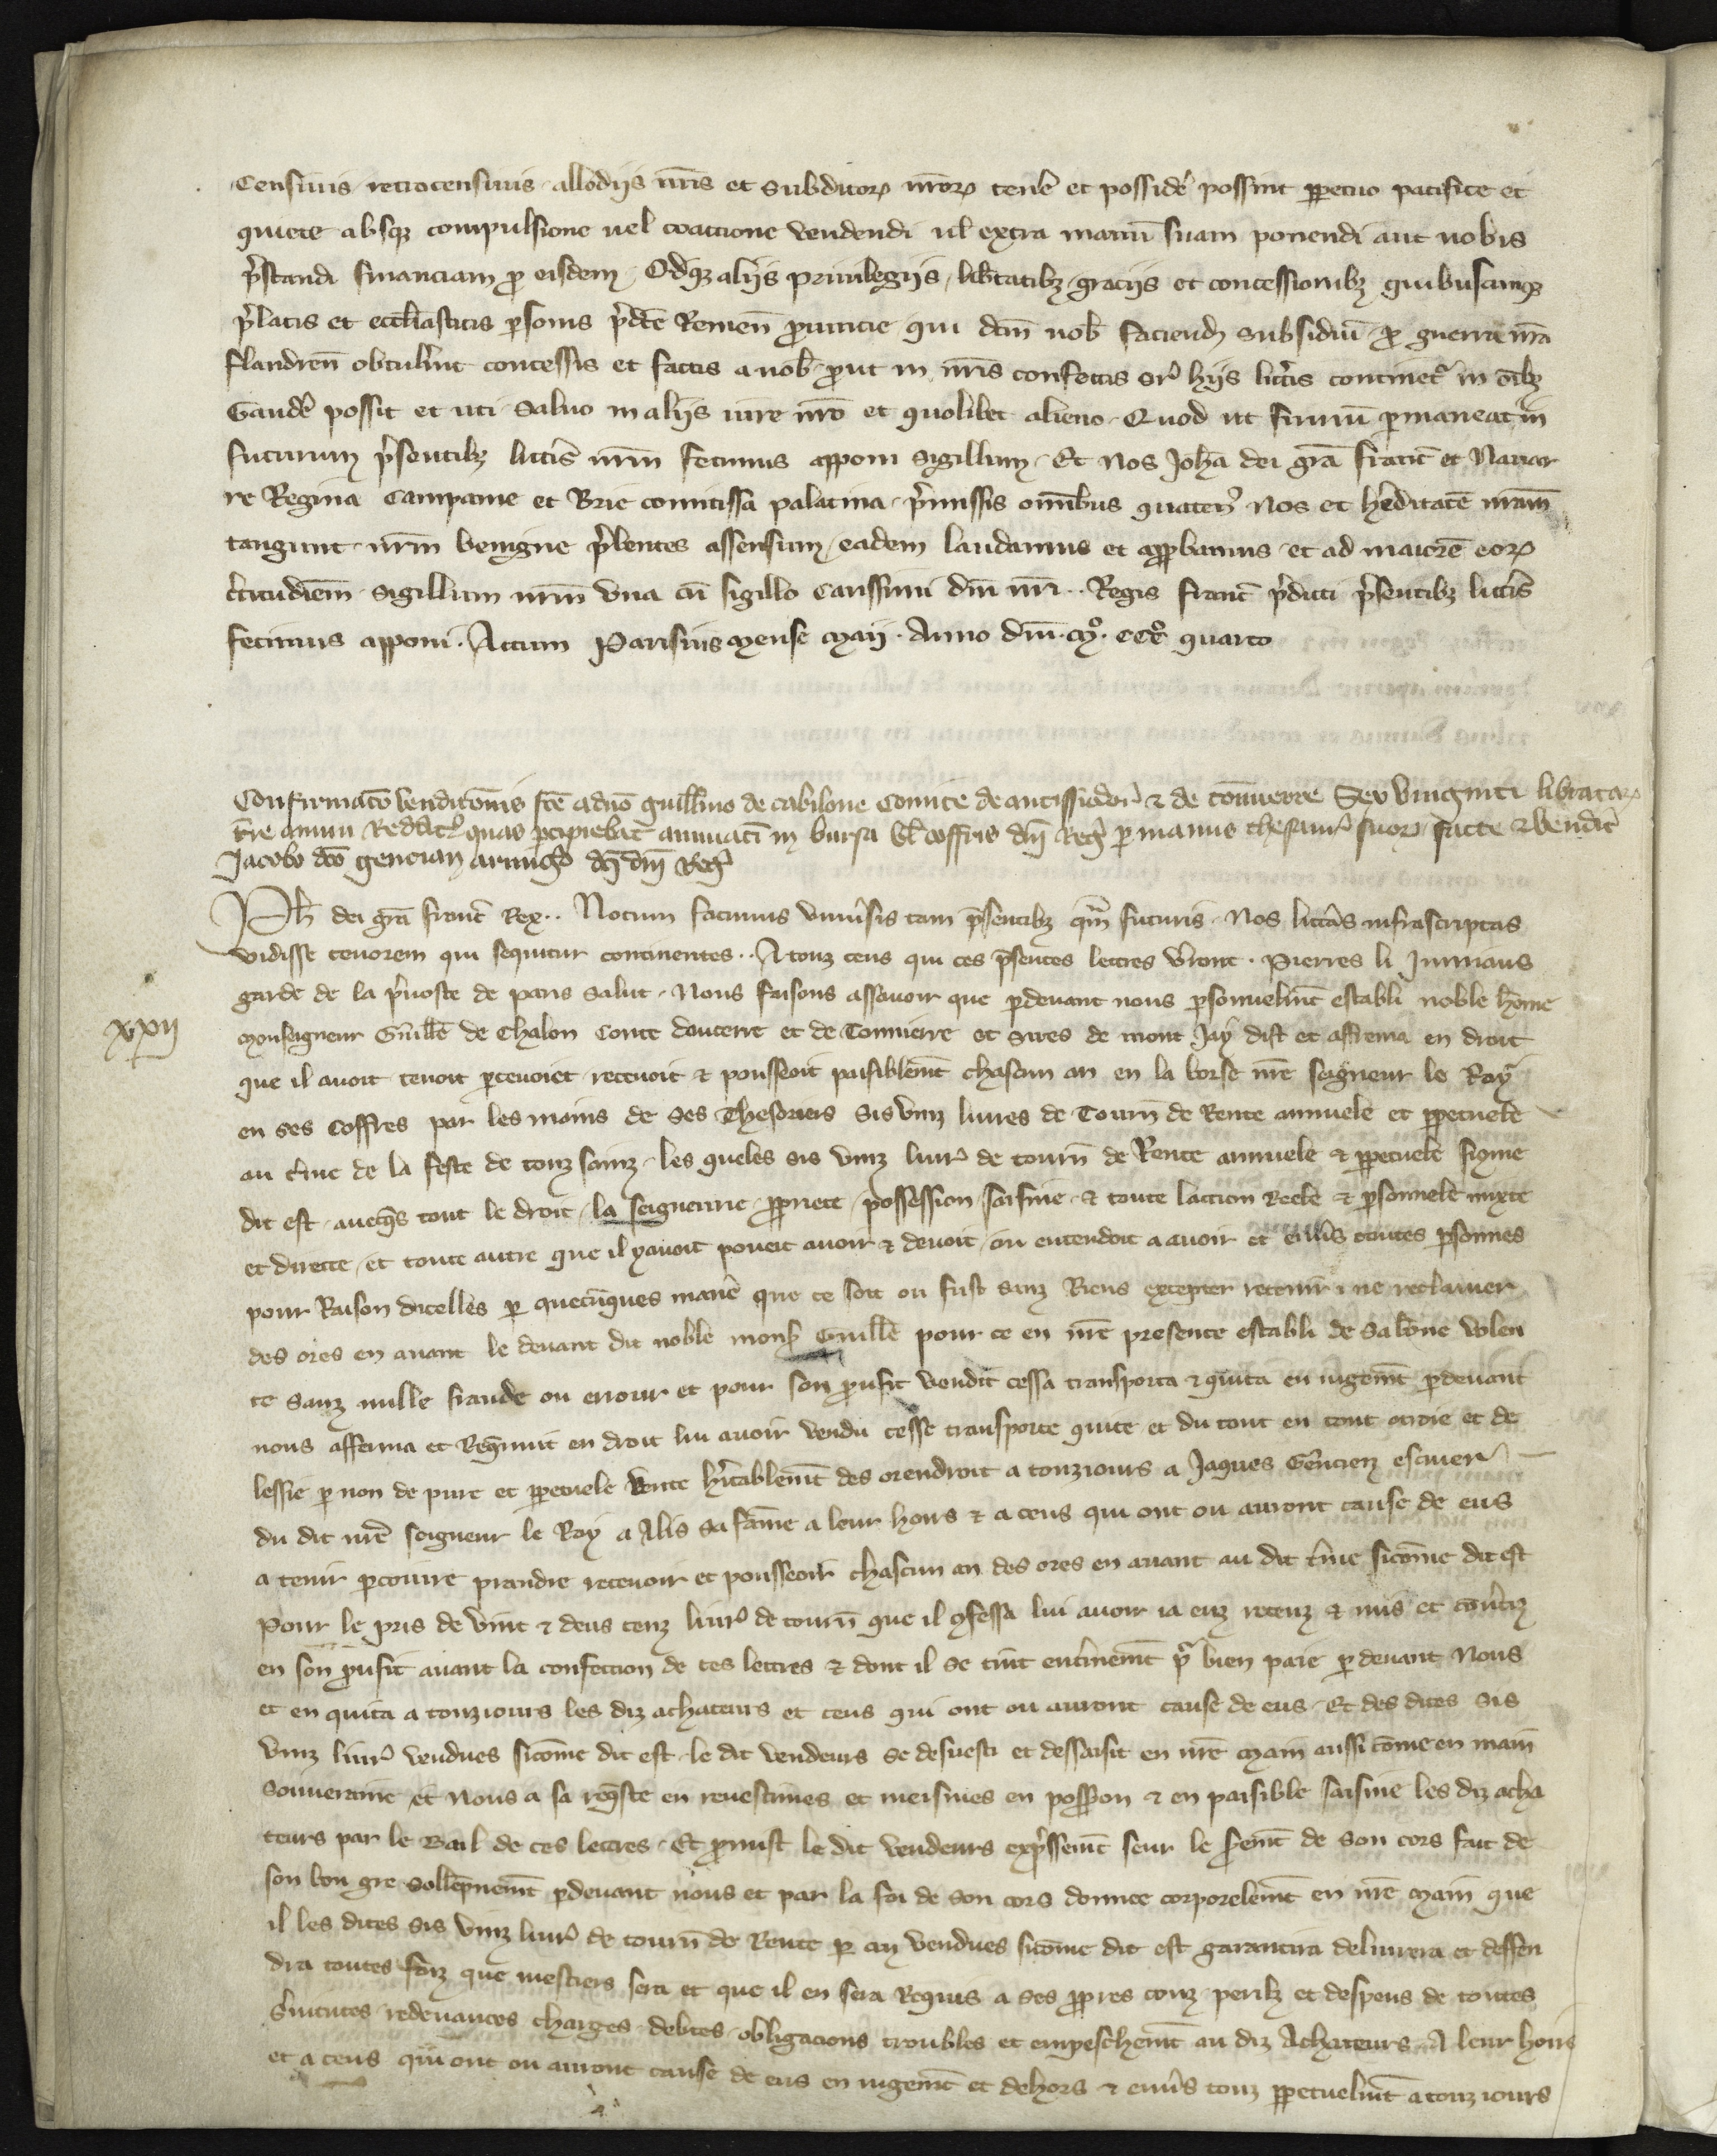 Censiuis retrocensiuis allodiis nr̄is et subditoꝝ nr̄oꝝ teneˀ et possideˀ possint ꝑpetuo pacifice et
quiete absqꝫ compulsione uel coactione vendendi ul̕ extra manū suam ponendi aut nobis
p̄standi financiam ꝓ eisdem. Oīdꝫ aliis priuilegiis, lib̕tatibꝫ, graciis et concessionibꝫ quibuscūqꝫ
p̄latis et ecclīasticis ꝑsonis p̄dc̄e Remen̄ ꝓuincie qui dc̄m nob̕ faciend̕ subsidiū ꝓ guerra nr̄a
flandren̄ obtul̕int concessis et factis a nob̕ ꝓut in nr̄is confectis suꝑ hiis litt̕is continet᷑ in oībꝫ
Gaudeˀ possit et uti. Saluo in aliis iure nr̄o et quolibet alieno. Quod ut firmū ꝑmaneat in
futurum p̄sentibꝫ litt̕is nr̄m fecimus apponi sigillum. Et Nos Joh̄a dei grā franc̄ et Nauar
re Regina Campanie et Brie comitissa palatina p̄missis omībus quaten᷒ Nos et h̕editatē nr̄am
tangunt nr̄m benigne p̄bentes assensum, eadem laudamus et approbamus et ad maiorē eoꝝ
c̕titudīem sigillum nr̄m vna cū sigillo Carissimi dn̄i nr̄i .. Regis franc̄ p̄dicti p̄sentibꝫ litt̕is
fecimus apponi. Actum Parisius mense maii. Anno dn̄i. mº. cccº quarto
Confirmatō venditōnis fc̄e a dn̄o guill̄mo de cabilone Comite de antissiodor̄ & de tōnuerre Sex viginti libratarꝝ
t̕re annui Reddit᷒ quas ꝑcipiebat annuati in bursa vl̕ coffris dn̄i Reg̕ ꝑ manus thesaur̄ suoꝝ facte & vendit̕
Jacobo dc̄o gencian armig̕o dc̄i dn̄i Reg̕
Ph̄ dei grā franc̄ Rex .. Notum facimus vniu̕sis tam p̄sentibꝫ qm̄ futuris. Nos litt̕as infrascriptas
vidisse tenorem qui sequitur continentes .. A touz ceus qui ces p̄sentes lettres v̕ront. Pierres li Jumiaus
garde de la p̄uoste de paris salut. Nous faisons assauoir que ꝑdeuant nous ꝑsonuelmēt establi noble hōme
xxij
monseigneur Guill̄e de Chalon Conte daucerre et de Tonnerre et sires de mont Jay dist et afferma en droit
que il auoit tenoit ꝑceuoiet receuoit & pousseoit paisiblemēt chascun an en la borse nr̄e seigneur le Roy
en ses coffres par les mains de ses Thesoriers sis vinz liures de Tourn̄ de Rente annuele et ꝑpetuele
au t̕me de la feste de touz sainz. les queles sis vinz liur᷒ de tourn̄ de Rente annuele & ꝑpetuele siqme
dit est. auecq̄s tout le droit. la seigneurie ꝓpriete possession saisine & toute laction Reele & ꝑsonnele mixte
et directe et toute autre que il yauoit pouoit auoir & deuoit ou entendoit a auoir et enu̕s toutes ꝑsonnes
pour Raison dicelles ꝑ quecūques manē que ce soit ou fust sanz Riens excepter retenir̄ ne reclamer
des ores en auant le deuant dit noble mons̕ Guill̄e pour ce en nr̄e presence establi de sa bōne volen
te sanz nulle fraude ou errour et pour son ꝓufit vendit cessa transporta & quita en iugemēt ꝑdeuant
nous afferma et Req̄nnut en droit lui auoir vendu cesse transporte quite et du tout en tout otroie et de
lessie ꝑ non de pure et ꝑpetuele vente h̕itablemēt des orendroit a touziours a Jaques Gēncien escuier
du dit nr̄e seigneur le Roy a Alis sa fāme a leur hoirs & a ceus qui ont ou auront cause de eus
a tenir ꝑceuuire prandre receuoir et pousseoir chascun an des ores en auant au dit t̕me sicōme dit est
Pour le pris de vint & deus cenz liur᷒ de tourn̄ que il ꝯfessa lui auoir ia euz receuz & mis et ꝯu̕tiz
en son ꝓufit auant la confection de ces lettres & dont il se tint enc̕inemēt pᷣ bien paie ꝑ deuant Nous
et en quita a touziours les diz achateurs et ceus qui ont ou auront cause de eus. Et des dites sis
vinz liur᷒ vendues sicōme dit est. le dit vendeurs se desuesti et dessaisit en nr̄e main aussi cōme en main
souueraine et Nous a sa req̄ste en reuestimes et meismes en poss̄ion & en paisible saisine les diz acha
teurs par le Bail de ces lettres. Et ꝓmist le dit vendeurs exp̄ssemēt seur le s̕emēt de son cors fait de
son bon gre sollēpnemēt ꝑdeuant nous et par la foi de son cors donnee corporelemēt en nr̄e main que
il les dites sis vinz liur᷒ de tourn̄ de Rente ꝑ an vendues sicōme dit est garantira deliurera et deffen
dra toutes foiz que mestiers sera et que il en sera Requis a ses ꝓpres couz perilz et despens de toutes
s̕uitutes redeuances charges debtes obligacions troubles et empeschemēt au diz Achateurs. A leur hoirs
et a ceus qui ont ou auront cause de eus en iugemēt et dehors & enu̕s touz ꝑpetuelmēt a touz iours